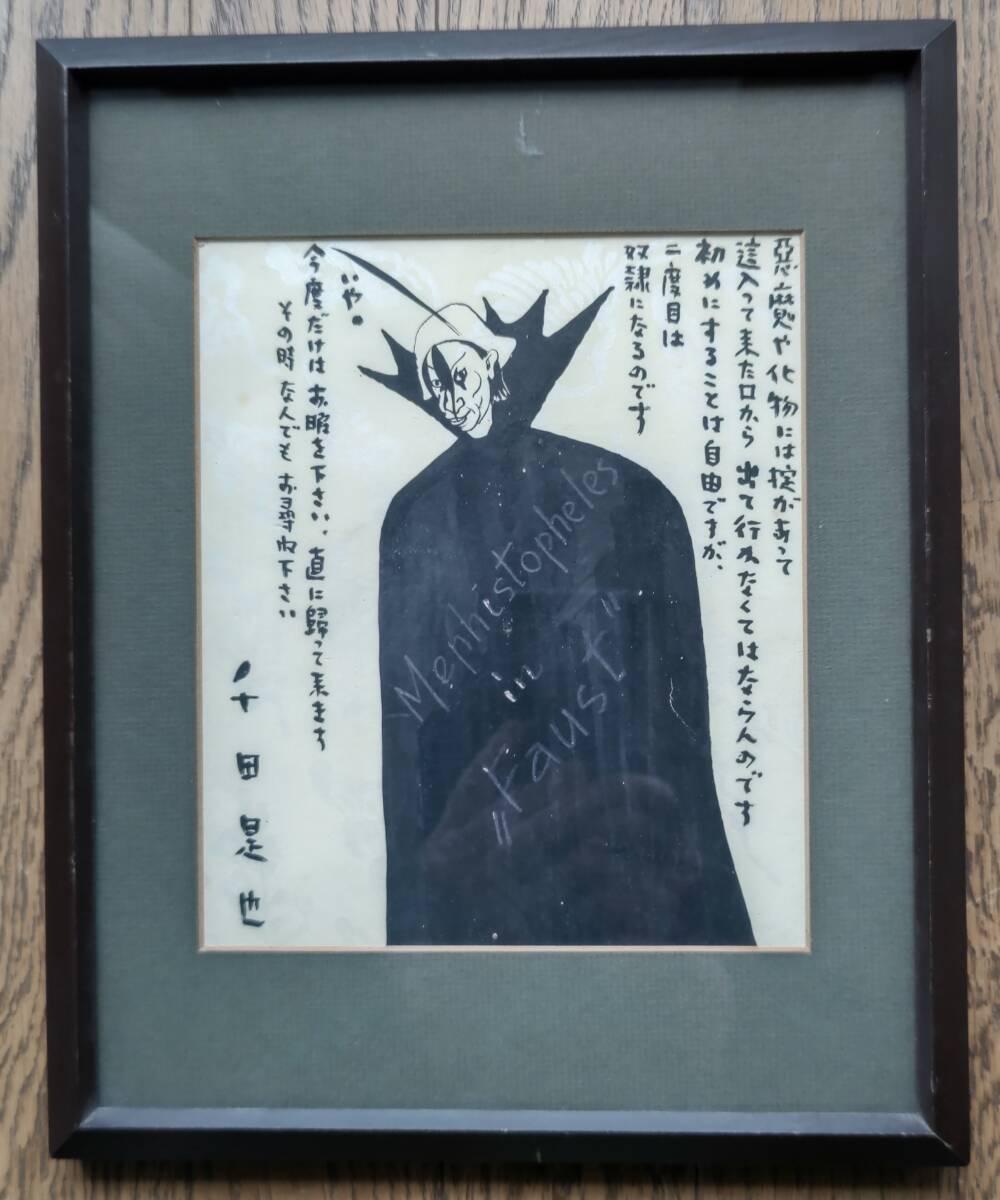 悪魔や化物には掟があって
這入って来た口から出て行かなくてはならんのです
初めにすることは自由ですが、
二度目は
奴隷になるのです
いや。
今度だけはお暇を下さい、直に歸って来ます
その時なんでもお尋ね下さい
千田是也
Mephistopheles
in
"Faust"